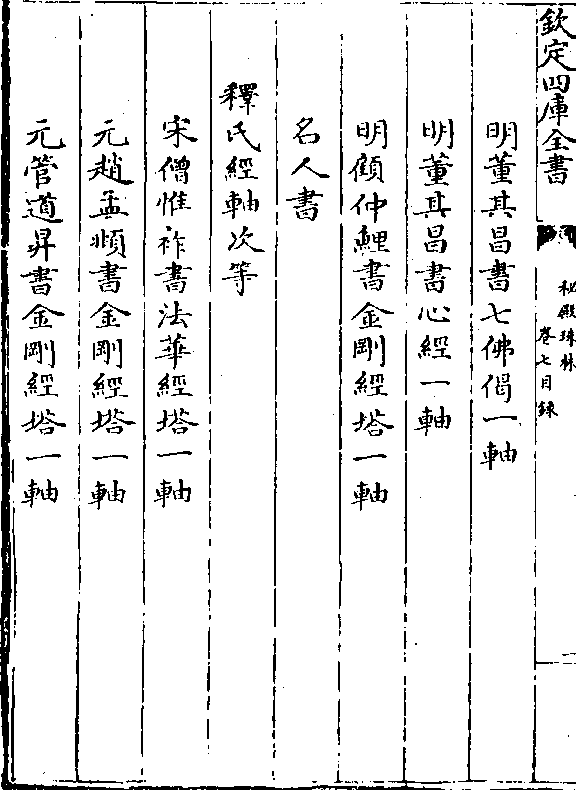 欽定四庫全書
秘殿珠林
卷七目録
明董其昌書七佛偈一軸
明董其昌書心經一軸
明顧仲鯉書金剛經塔一軸
名人書
釋氏經軸次等
宋僧惟祚書法華經塔一軸
元趙孟頫書金剛經塔一軸
元管道昇書金剛經塔一軸